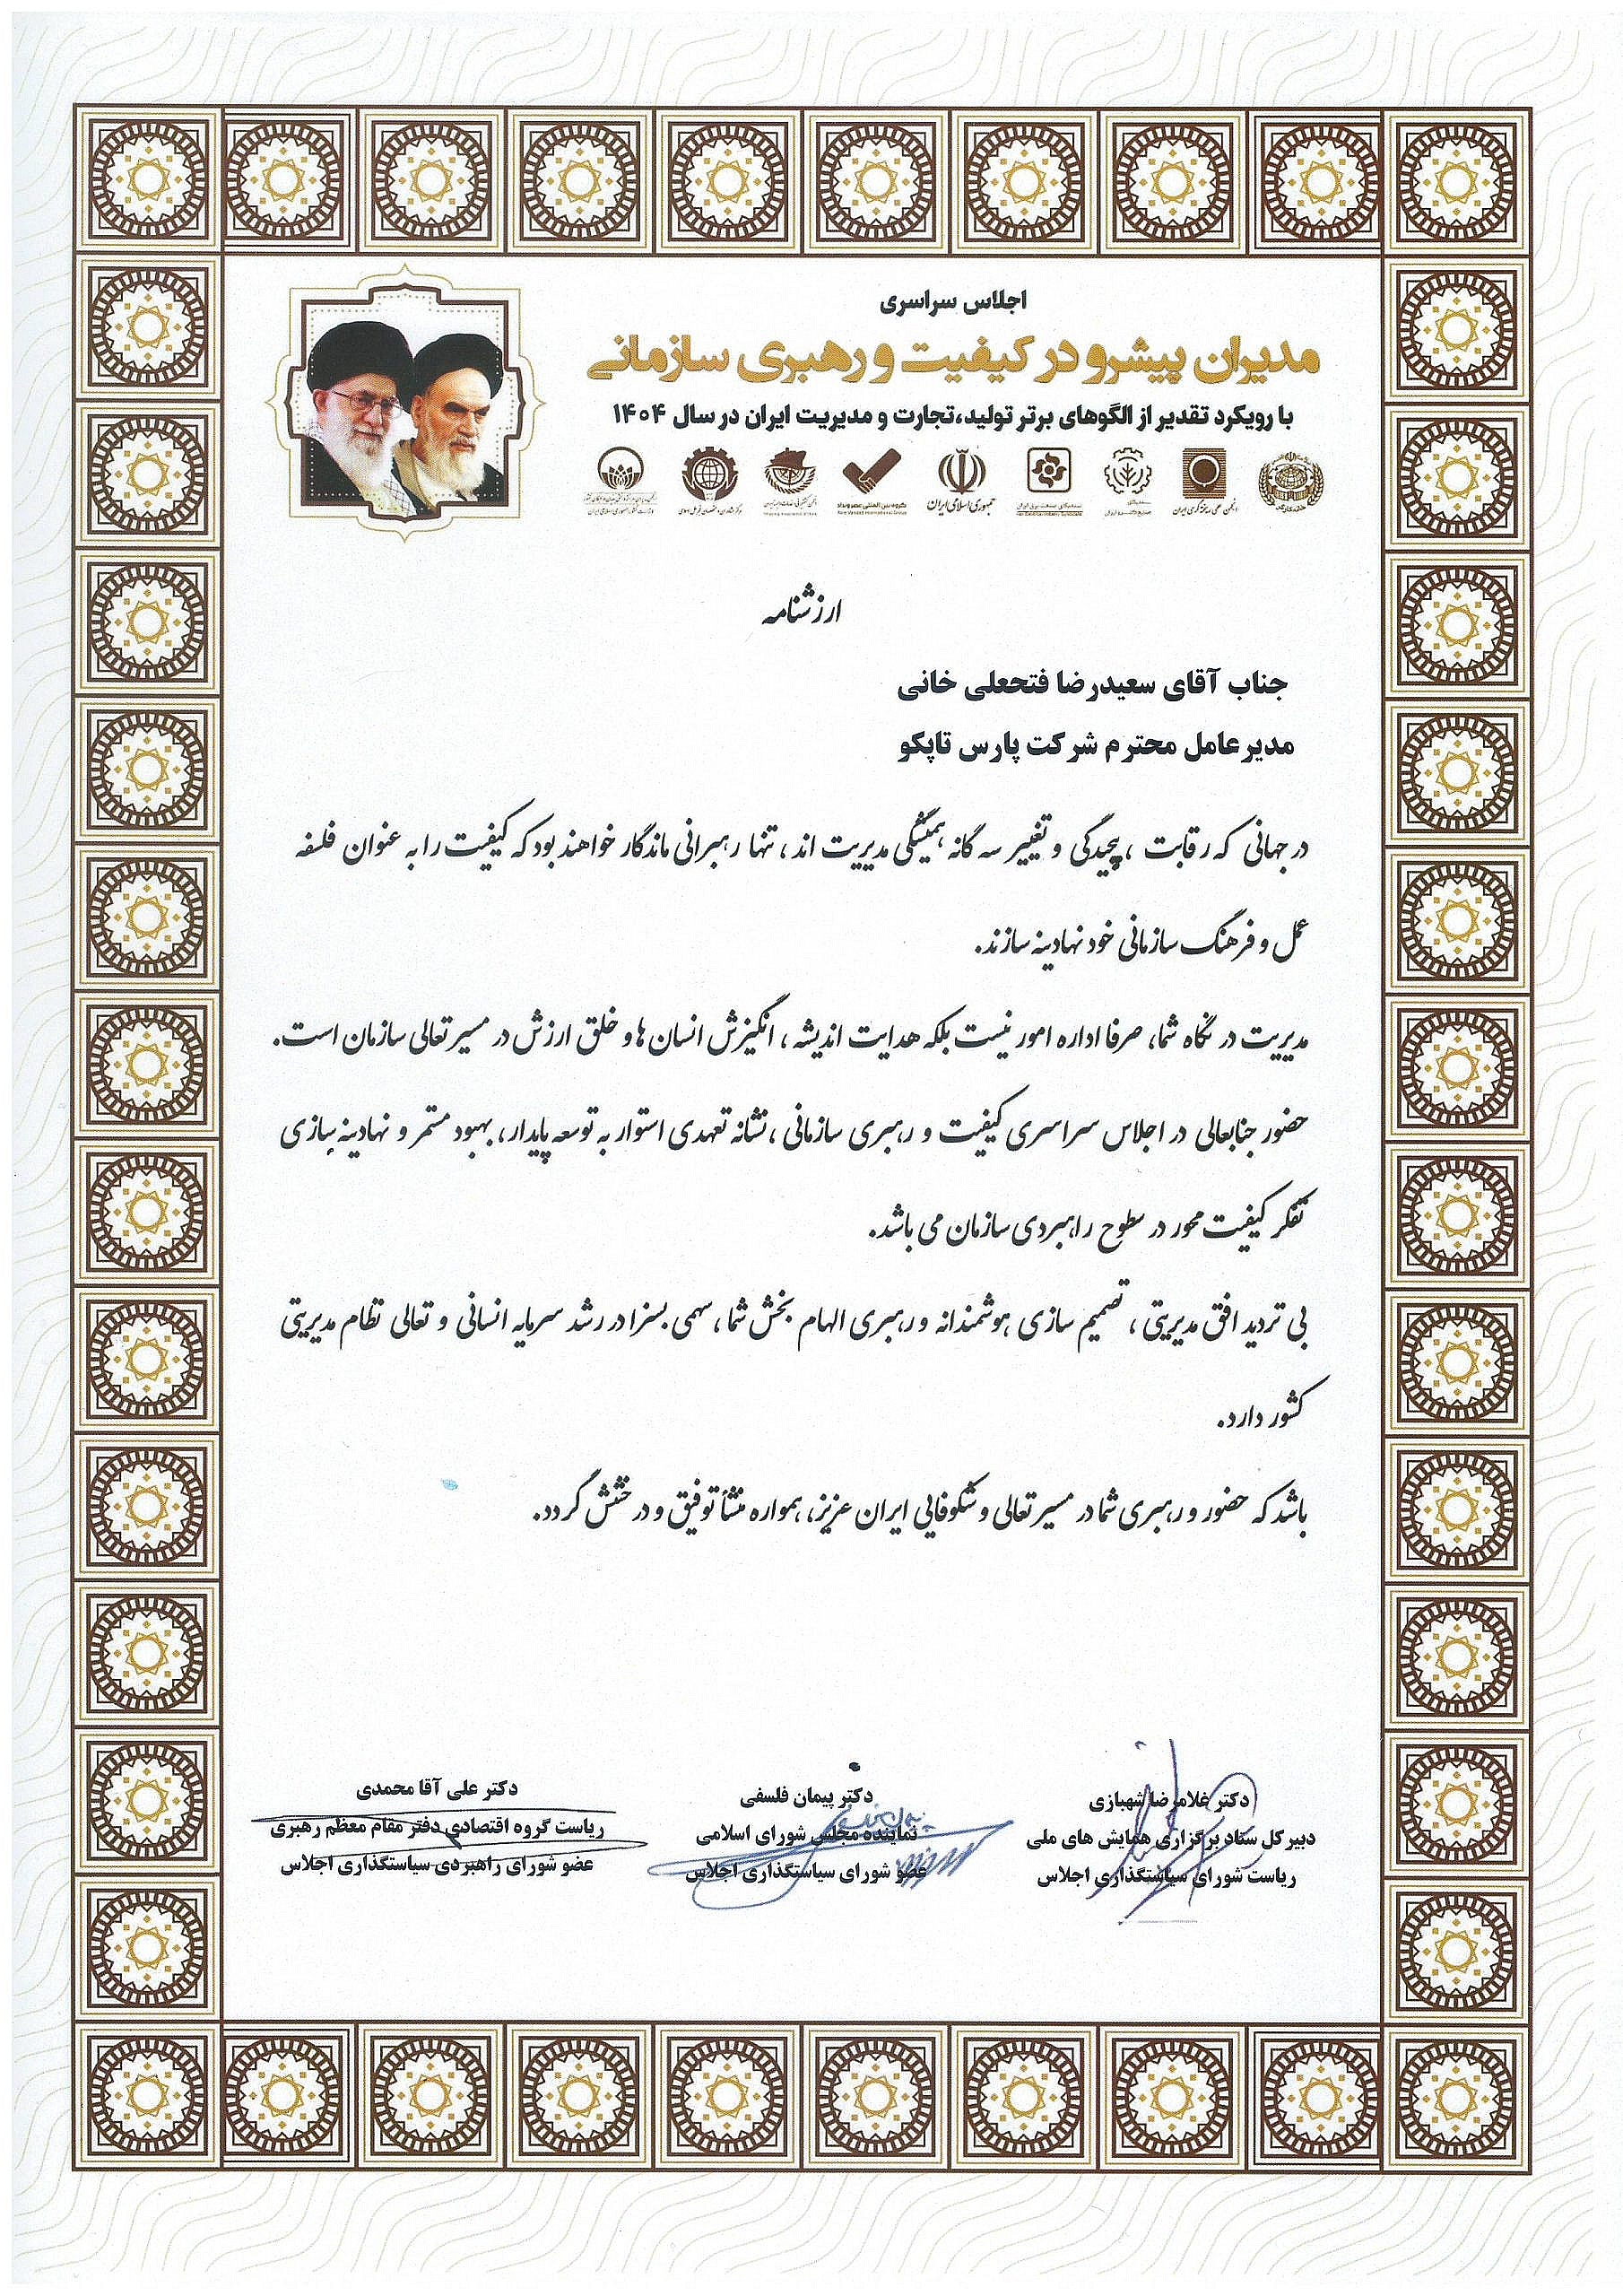 اجلاس سراسری
مدیران پیشرو در کیفیت و رهبری سازمانی
با رویکرد تقدیر از الگوهای برتر تولید،تجارت و مدیریت ایران در سال ۱۴۰۴
جمهوری اسلامی ایران
گروه بین المللی عصر رویداد
ارزشنامه
جناب آقای سعیدرضا فتحعلی خانی
مدیرعامل محترم شرکت پارس تاپکو
در جهانی که رقابت ، پیچیدگی و تغییر سه گانه همیشگی مدیریت اند ، تنها رهبرانی ماندگار خواهند بود که کیفیت را به عنوان فلسفه
عمل و فرهنگ سازمانی خود نهادینه سازند.
مدیریت در نگاه شما، صرفا اداره امور نیست بلکه هدایت اندیشه ، انگیزش انسان ها و خلق ارزش در مسیر تعالی سازمان است.
حضور جنابعالی در اجلاس سراسری کیفیت و رهبری سازمانی ، نشانه تعهدی استوار به توسعه پایدار، بهبود مستمر و نهادینه سازی
تفکر کیفیت محور در سطوح راهبردی سازمان می باشد.
بی تردید افق مدیریتی ، تصمیم سازی هوشمندانه و رهبری الهام بخش شما، سهمی بسزا در رشد سرمایه انسانی و تعالی نظام مدیریتی
کشور دارد.
باشد که حضور و رهبری شما در مسیر تعالی و شکوفایی ایران عزیز، همواره منشأ توفیق و درخشش گردد.
دکتر غلامرضا شهبازی
دبیر کل ستاد برگزاری همایش های ملی
ریاست شورای سیاستگذاری اجلاس
دکتر پیمان فلسفی
نماینده مجلس شورای اسلامی
عضو شورای سیاستگذاری اجلاس
دکتر علی آقا محمدی
ریاست گروه اقتصادی دفتر مقام معظم رهبری
عضو شورای راهبردی سیاستگذاری اجلاس